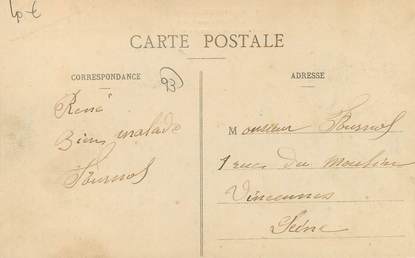 40 €
CARTE POSTALE
CORRESPONDANCE
93
ADRESSE
René
Bien malade
Fournol
Monsieur Fournol
1 rue du Moulin
Vincennes
Seine